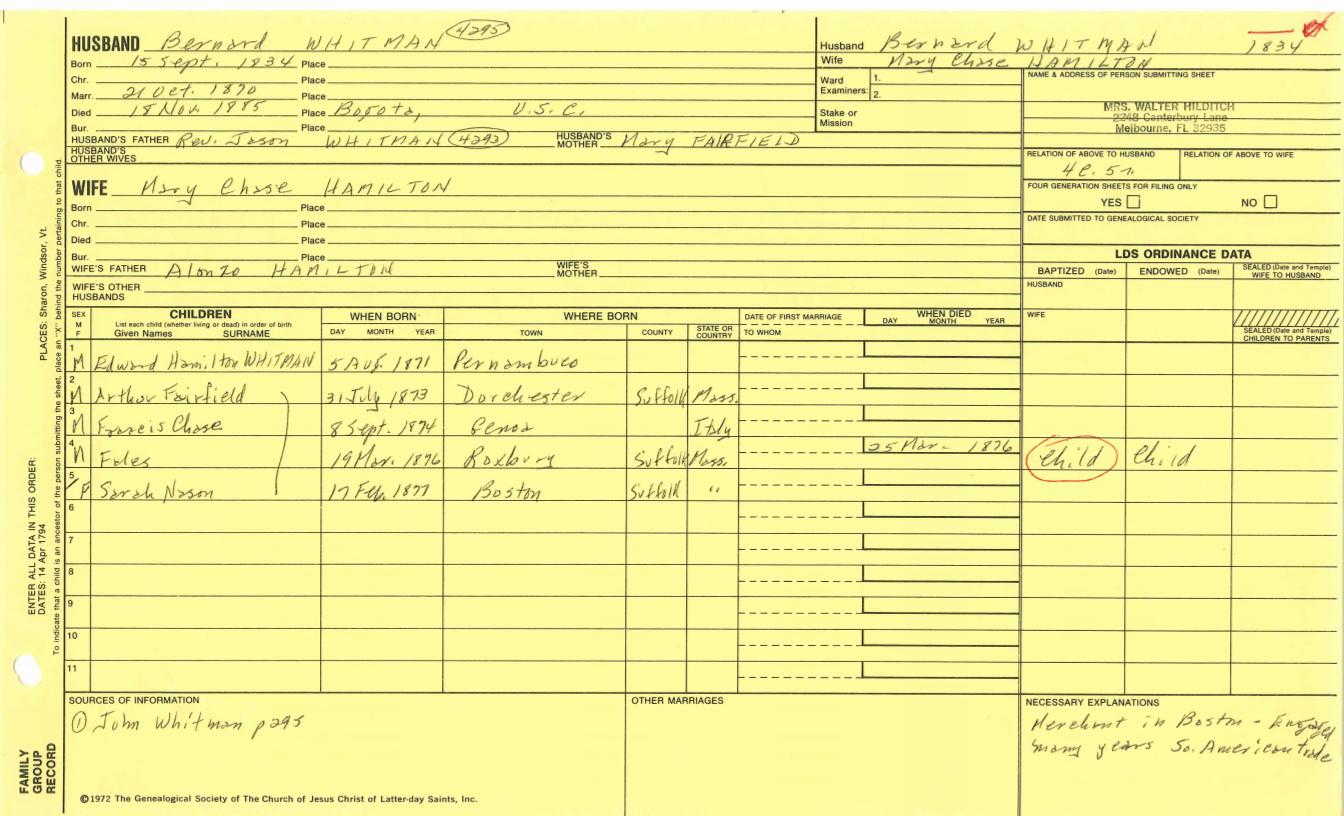 HUSBAND Bernard WHITMAN 4295
Born 15 Sept. 1834 Place
Chr. Place
Marr. 21 Oct. 1870 Place
Died 18 Nov. 1885 Place Bogota, U.S.C.
Bur. Place
HUSBAND'S FATHER Rev. Jason WHITMAN 4293 HUSBAND'S MOTHER Mary FAIRFIELD
HUSBAND'S OTHER WIVES
Husband Bernard WHITMAN 1834
Wife Mary Chase HAMILTON
Ward Examiners: 1.
2.
Stake or Mission
NAME & ADDRESS OF PERSON SUBMITTING SHEET
MRS. WALTER HILDITCH
2248 Canterbury Lane
Melbourne, FL 32935
RELATION OF ABOVE TO HUSBAND RELATION OF ABOVE TO WIFE
4c. 5r.
FOUR GENERATION SHEETS FOR FILING ONLY
YES NO
DATE SUBMITTED TO GENEALOGICAL SOCIETY
WIFE Mary Chase HAMILTON
Born Place
Chr. Place
Died Place
Bur. Place
WIFE'S FATHER Alonzo HAMILTON WIFE'S MOTHER
WIFE'S OTHER HUSBANDS
LDS ORDINANCE DATA
BAPTIZED (Date) ENDOWED (Date) SEALED (Date and Temple) WIFE TO HUSBAND
HUSBAND
WIFE
SEALED (Date and Temple) CHILDREN TO PARENTS
SEX M F
CHILDREN
List each child (whether living or dead) in order of birth
Given Names SURNAME
WHEN BORN
DAY MONTH YEAR
WHERE BORN
TOWN COUNTY STATE OR COUNTRY
DATE OF FIRST MARRIAGE
TO WHOM
WHEN DIED
DAY MONTH YEAR
1 M Edward Hamilton WHITMAN 5 Aug. 1871 Pernambuco
2 M Arthur Fairfield 31 July 1873 Dorchester Suffolk Mass.
3 M Francis Chase 8 Sept. 1874 Genoa Italy
4 M Fales 19 Mar. 1876 Roxbury Suffolk Mass. 25 Mar. 1876 Child Child
5 F Sarah Nason 17 Feb. 1877 Boston Suffolk "
6
7
8
9
10
11
SOURCES OF INFORMATION
① John Whitman p 295
OTHER MARRIAGES
NECESSARY EXPLANATIONS
Merchant in Boston - Engaged
many years So. American trade
©1972 The Genealogical Society of The Church of Jesus Christ of Latter-day Saints, Inc.
FAMILY GROUP RECORD
ENTER ALL DATA IN THIS ORDER:
DATES: 14 Apr 1794
PLACES: Sharon, Windsor, Vt.
To indicate that a child is an ancestor of the person submitting the sheet, place an "X" behind the number pertaining to that child.